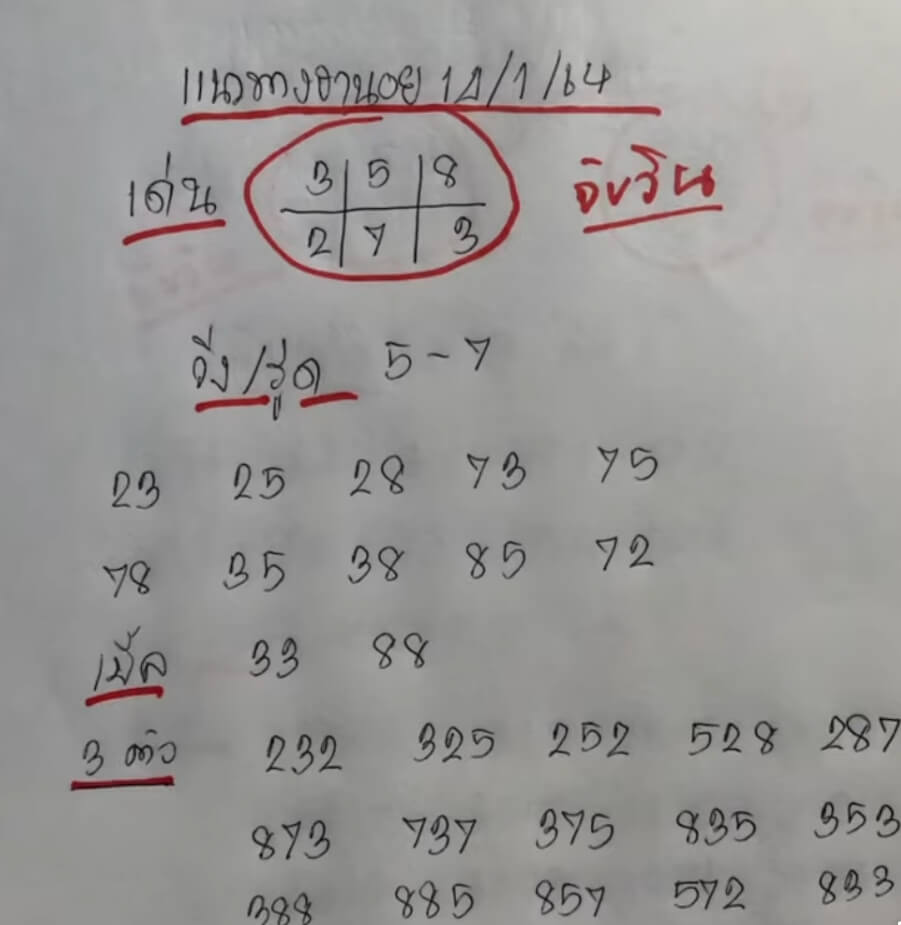 แนวทางฮานอย 12/1/64
เด่น 3 5 8
2 7 3
วิ่ง/รูด 5-7
23 25 28 73 75
78 35 38 85 72
เบิ้ล 33 88
3 ตัว 232 325 252 528 287
873 737 375 835 353
388 885 857 572 833